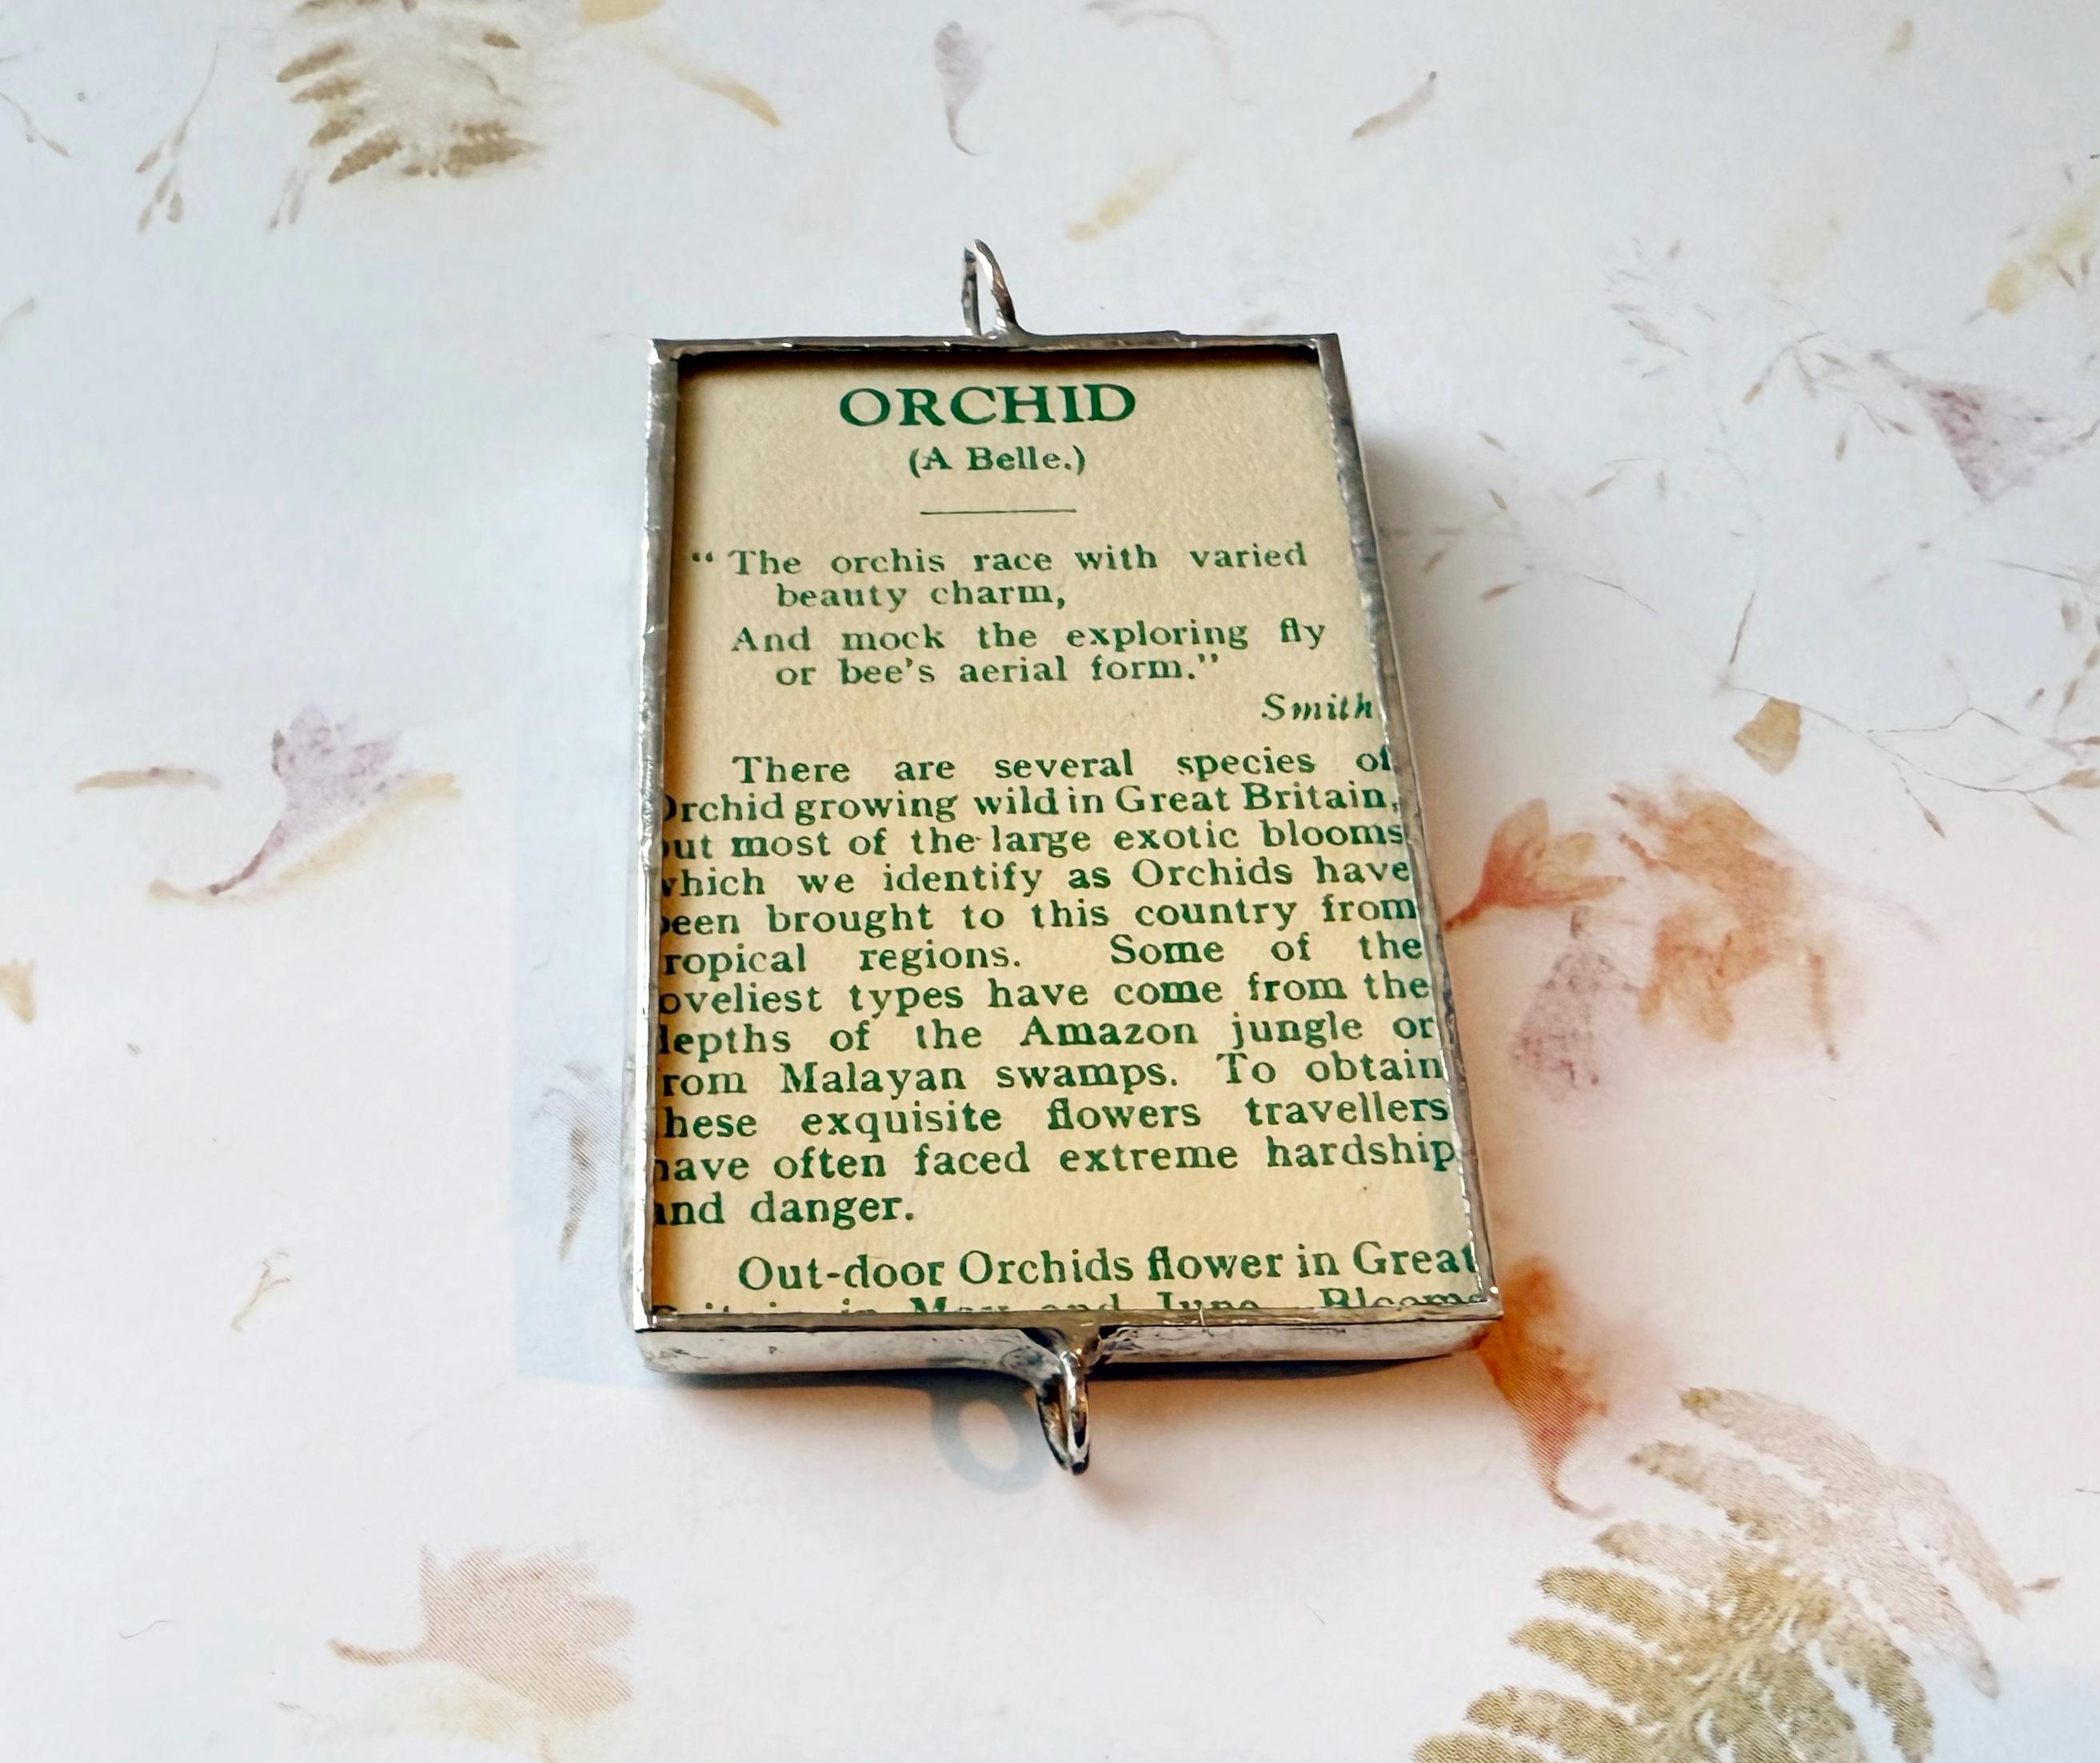 ORCHID
(A Belle.)
“ The orchis race with varied
beauty charm,
And mock the exploring fly
or bee's aerial form.”
Smith
There are several species of
Orchid growing wild in Great Britain,
but most of the large exotic blooms
which we identify as Orchids have
been brought to this country from
tropical regions. Some of the
loveliest types have come from the
depths of the Amazon jungle or
from Malayan swamps. To obtain
these exquisite flowers travellers
have often faced extreme hardship
and danger.
Out-door Orchids flower in Great
Britain in May and June. Blooms